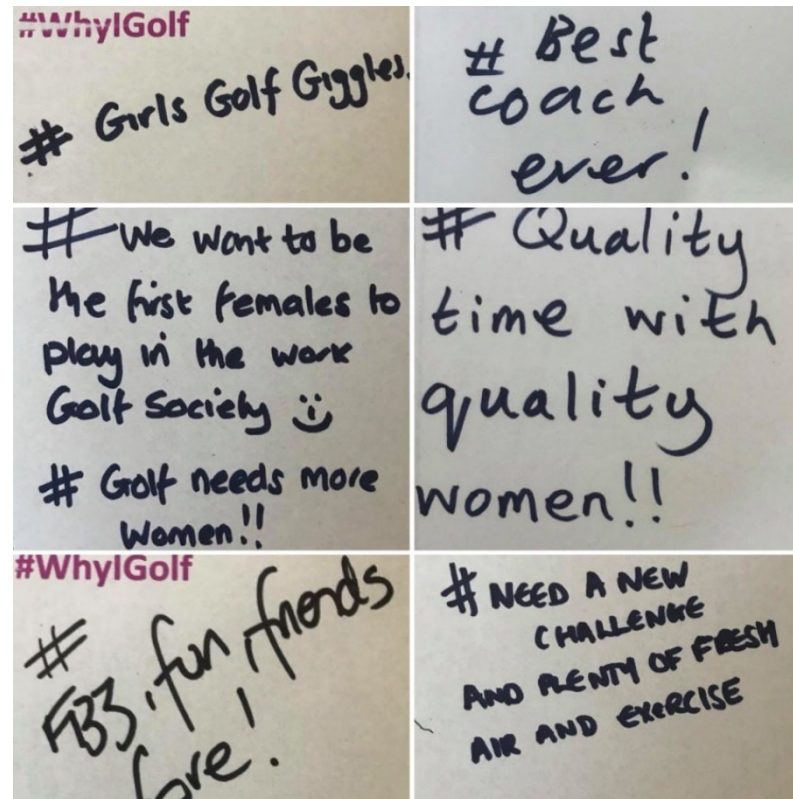 #WhyIGolf
# Girls Golf Giggles.
# Best
coach
ever!
# We want to be
the first females to
play in the work
Golf Society
# Golf needs more
women!!
# Quality
time with
quality
women!!
#WhyIGolf
#
fun, friends
fore!
# NEED A NEW
CHALLENGE
AND PLENTY OF FRESH
AIR AND EXERCISE